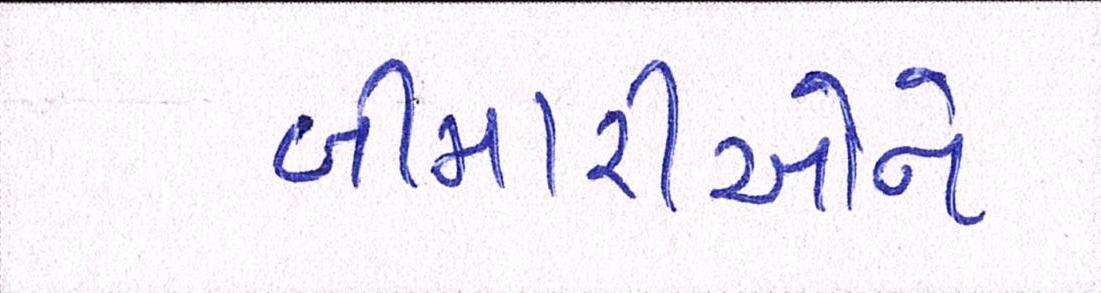 બીમારીઓને